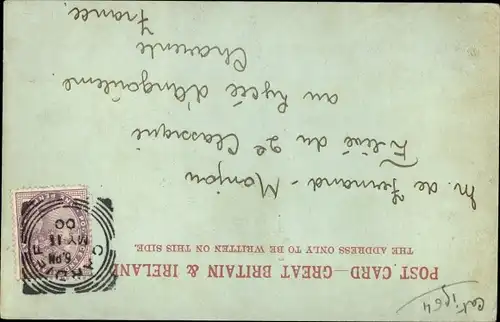 POST CARD—GREAT BRITAIN & IRELAND
THE ADDRESS ONLY TO BE WRITTEN ON THIS SIDE.
M. de Fernand-Monjou
Élève du 2e Classique
au Lycée d'Angoulême
Charente
France.
CARDIFF
6.PM
MY 13
00